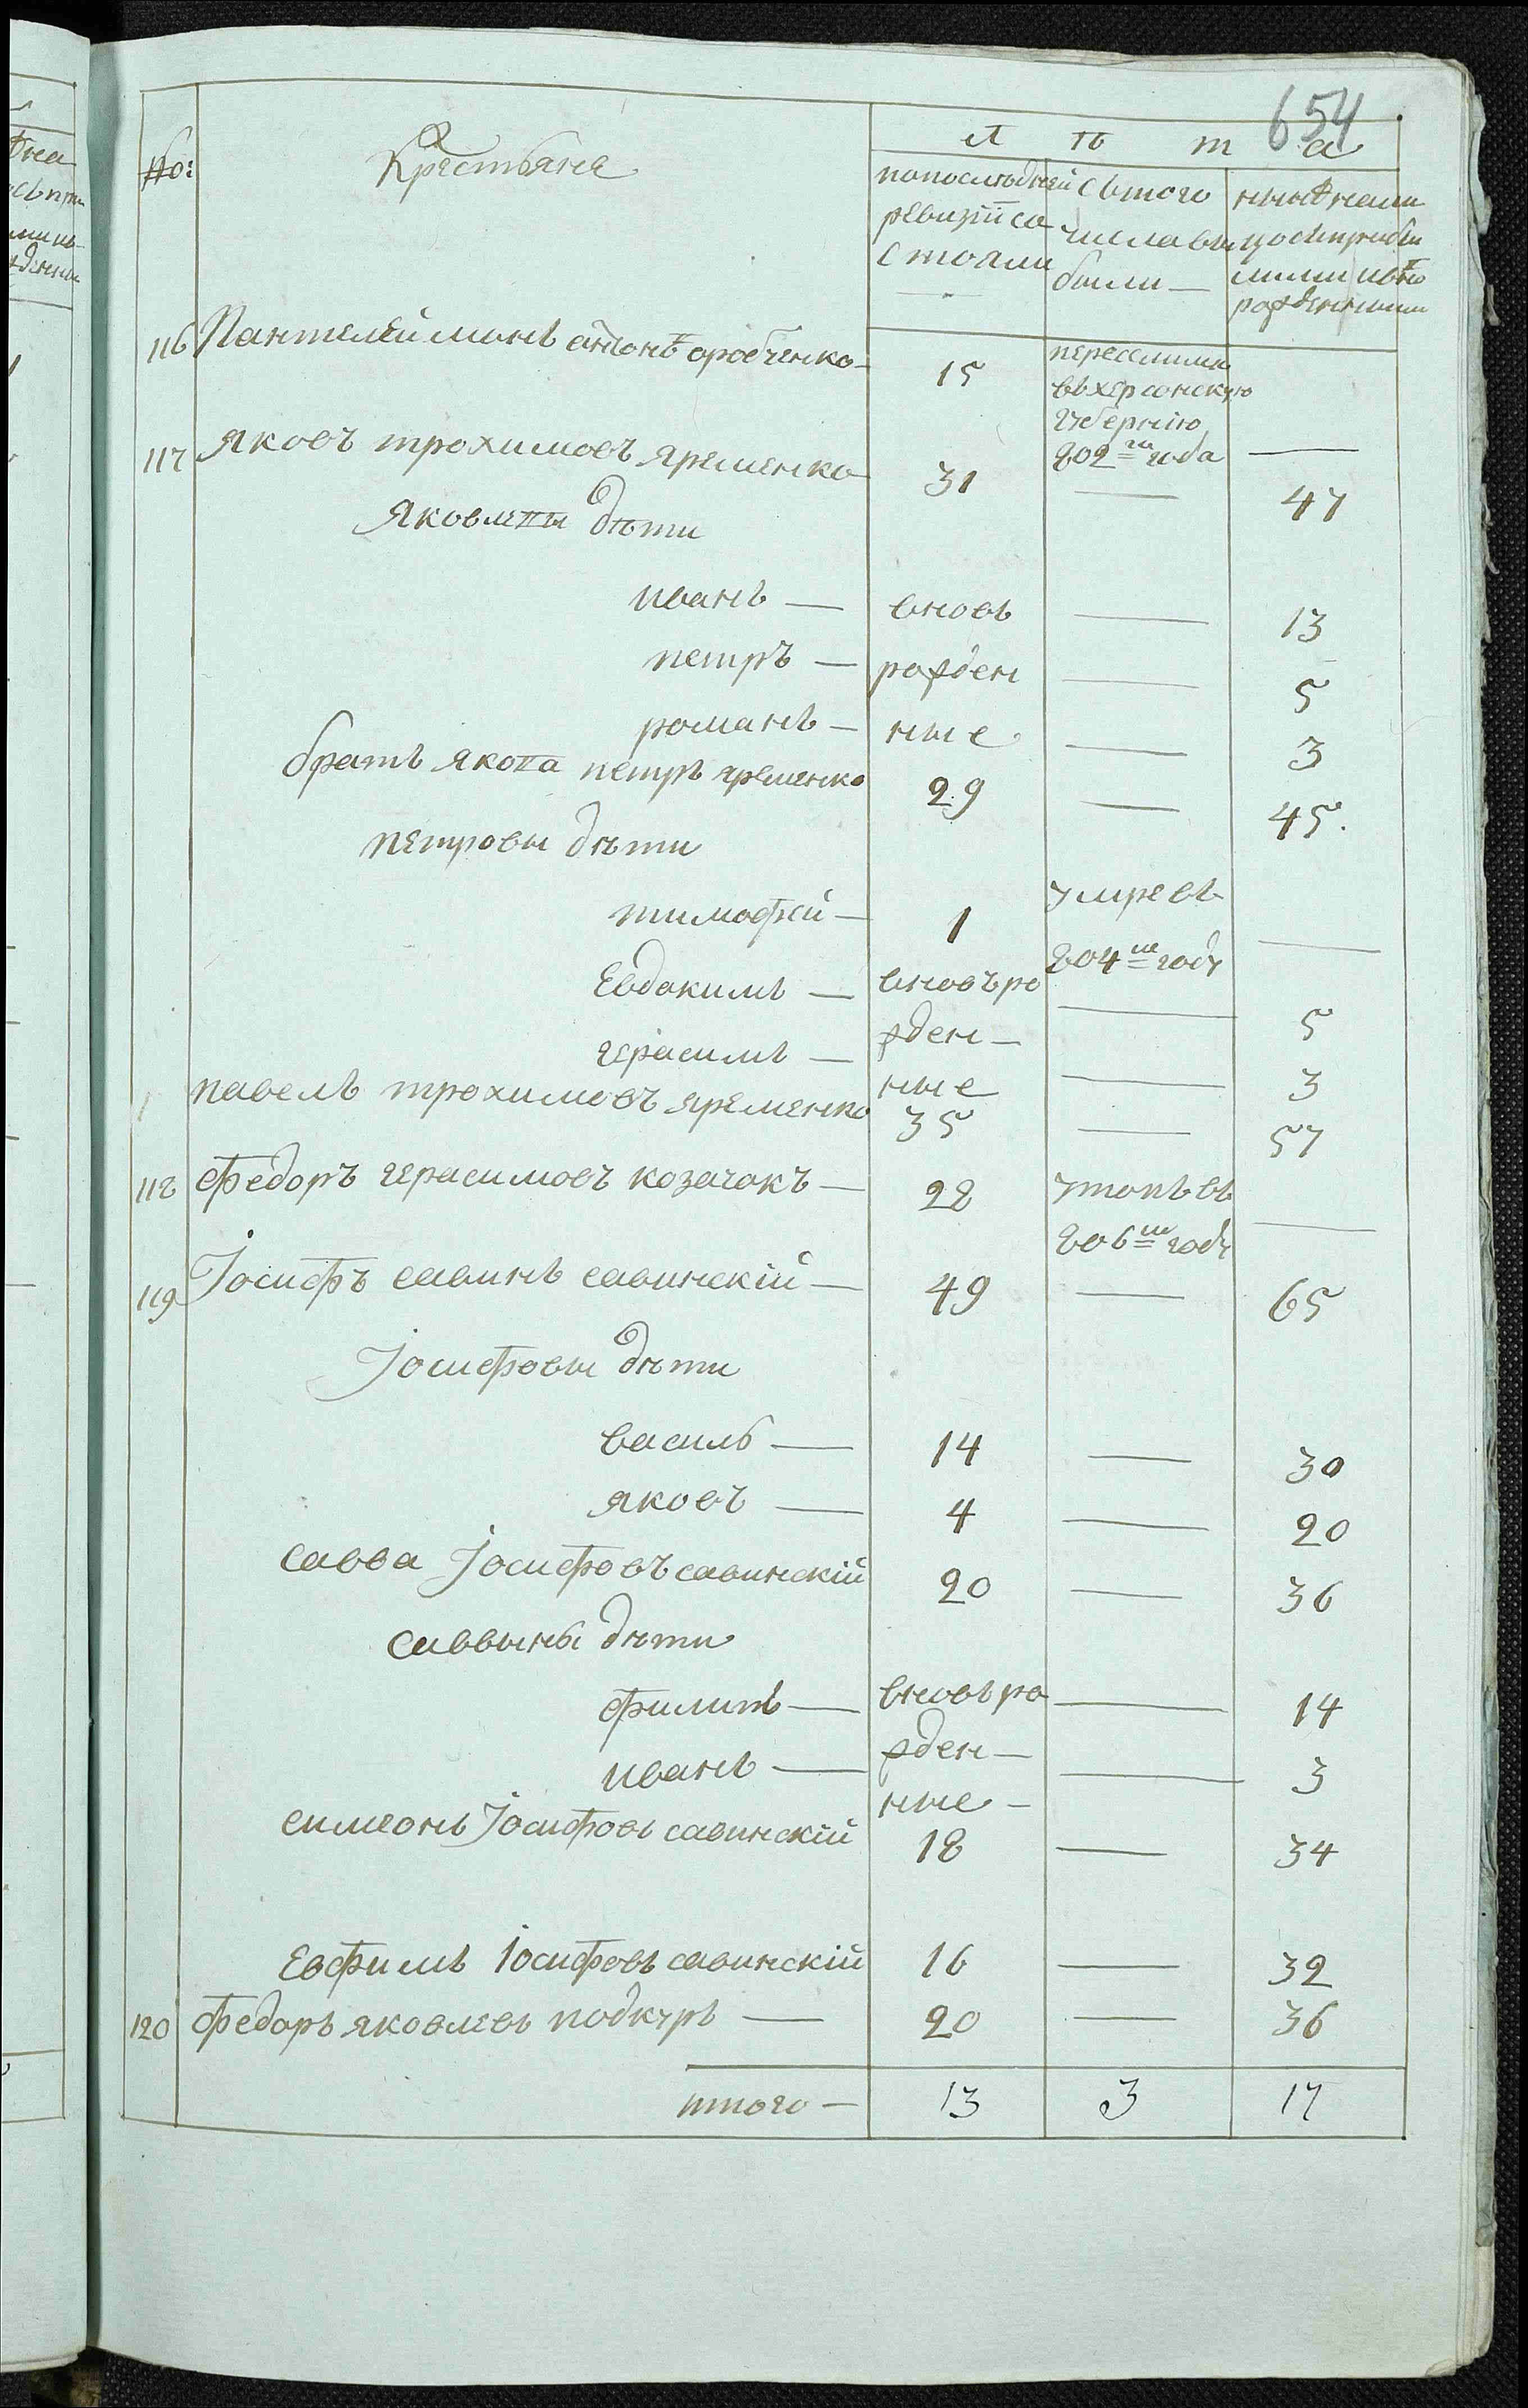 654
№: Крестьяне
л ѣ т а
по последней ревизіи состояли
съ того числа выбыли
116 Пантелеймонъ антонѣ оробченко — 15 переселились въ херсонскую губернію 802го года —
117 яковъ трохимовъ яременко 31 — 47
яковлевы дѣти
иванъ — вновь — 13
петръ — рожден — 5
романъ — ные — 3
братъ якова петръ яременко 29 — 45.
петровы дѣти
тимофей — 1 умре въ 804м году —
Евдокимъ — вновь ро — 5
герасимъ — жден — 3
ные
павелъ трохимовъ яременко 35 — 57
118 федоръ герасимовъ козачокъ — 28 утопъ въ 806м году —
119 Іосифъ савинъ савинскій — 49 — 65
Іосифовы дѣти
василь — 14 — 30
яковъ — 4 — 20
савва Іосифовъ савинскій 20 — 36
саввины дѣти
филипъ — вновь ро — 14
иванъ — жден — 3
ные —
симеонъ Іосифовъ савинскій 18 — 34
Евфимъ Іосифовъ савинскій 16 — 32
120 федоръ яковлевъ подкуръ — 20 — 36
итого — 13 3 17